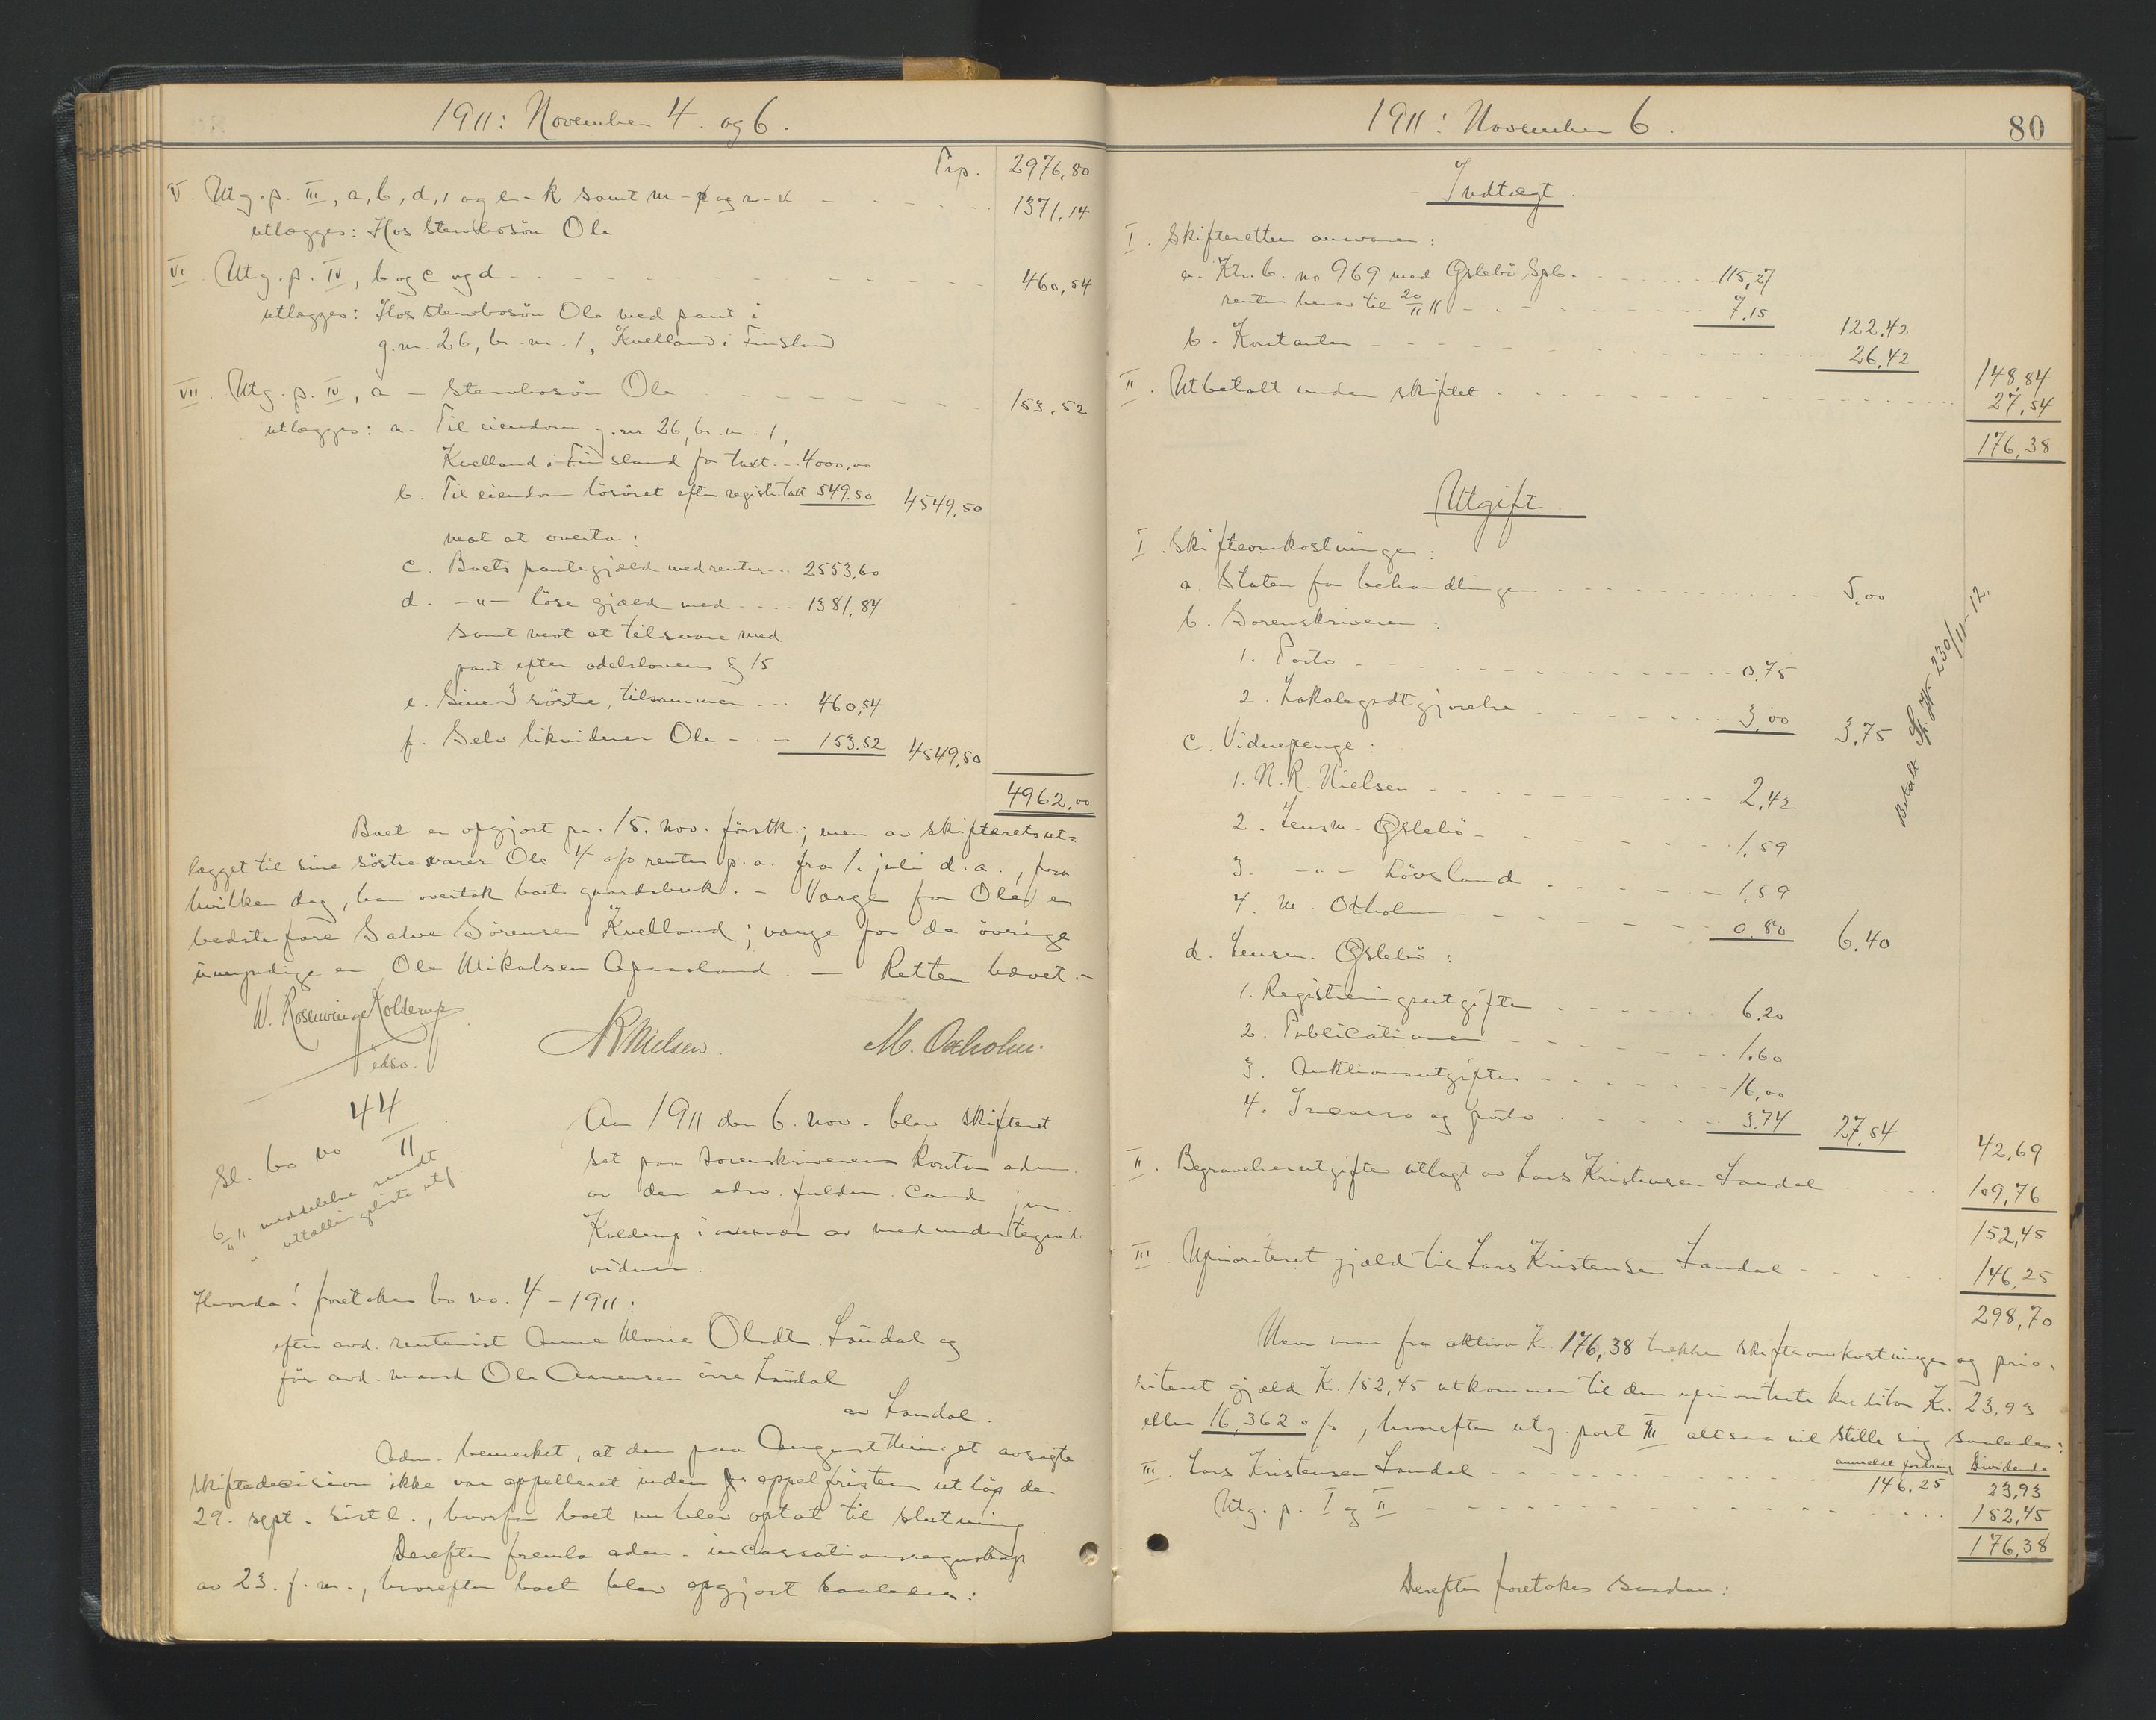 1911: November 4. og 6.
Trp. 2976,80
V. Utg. p. III, a, b, d, 1 og e-k samt m-p og r-v - - - - - - 1371,14
utlægges: Hos stervbosön Ole
VI. Utg. p. IV, b og c og d - - - - - - - - 460,54
utlægges: Hos stervbosön Ole med pant i
g.nr. 26, br. nr. 1, Kvelland i Finsland
VII. Utg. p. IV, a - Stervbosön Ole - - - - - - - 153,52
utlægges: a. Til eiendom g.nr 26, br. nr. 1,
Kvelland i Finsland for taxt. - . 4000,00
b. Til eiendom lösöret efter registr. taxt 549.50 4549,50
mot at overta:
c. Boets pantegjæld med renter - .. 2553,60
d. -"- löse gjæld med - - . . 1381,84
samt mot at tilsvare med
pant efter odelslovens § 15
e. Sine 3 söstre, tilsammen - .. 460,54
f. Selv likviderer Ole - . - 153.52 4549,50
4962,00
Boet er opgjort pr. 15. nov. förstk.; men av skifteretsut=
lægget til sine söstre svarer Ole 4 o/o renter p.a. fra 1. juli d.a., fra
hvilken dag, han overtok boets gaardsbruk. - Værge for Ole er
bedstefare Salve Sörensen Kvelland; værge for de övrige
umyndige er Ole Mikalsen . - Retten hævet. -
W. Rosenvinge Kolderup
edsv.
NRNielsen. M. Oxholm.
44
Sl. bo no II
6/11 11 meddelelse sendt
" utf
Aar 1911 den 6. nov. blev skifteret
sat paa sorenskriverens kontor adm.
av den edsv. fuldm. cand. jur.
Kolderup i overvær av medundertegnede
vidner.
Hvorda! foretokes bo no. 4 - 1911:
efter avd. rentenist Anne Marie Olsdt. Laudal og
för avd. mand Ole Aanensen övre Laudal
av Laudal.
Adm. bemerket, at den paa Augustthinget avsagte
skiftedecision ikke var appelleret inden appelfristens utløp den
29. sept. sistl., hvorfor boet nu blev optat til slutning.
Derefter fremla adm. incassationsregnskap
av 23. f. m., hvorefter boet blev opgjort saaledes:
1911: November 6.
80
Indtægt.
I. Skifteretten ansvarer:
a. Ktr. b. no 969 med Øslebö Spb. - . . . . . . 115,27
renter herav til 20/11 11 - - - - - - - - 7.15 122.42
b. Kontanter - - - - - - - . . . . . . 26.42 148,84
II. Utbetalt under skiftet . . . . . . . . . . . 27,54
176,38
Utgift
I. Skifteomkostninger:
a. Staten for behandlingen - - - - - - - 5,00
b. Sorenskriveren:
1. Porto - - - - - - - - - 0,75
2. Lokalegodtgjörelse - - - - - - 3,00 3,75
c. Vidnepenge:
1. N. R. Nielsen - - - - - - - - 2,42
2. Lensm. Øslebö - - - - - - - 1,59
3. -"- Lövsland . . . . - - - 1,59
4. M. Oxholm - - - - - - - 0,80 6.40
d. Lensm. Øslebö:
1. Registreringsutgifter . - - - - - - 6,20
2. Publicationer - - - - - - - 1.60
3. Auktionsutgifter - - - - - - 16,00
4. Incasso og porto . - - - . 3,74 27,54 42,69
Betalt 230/11-12.
II. Begravelsesutgifter utlagt av Lars Kristensen Laudal - . . . 109,76
152,45
III. Uprioriteret gjæld til Lars Kristensen Laudal - - . . 146,25
298,70
Naar man fra aktiva Kr. 176,38 trækker skifteomkostninger og prio=
riteret gjæld Kr. 152,45 utkommer til den upriorterte kreditor Kr. 23,93
eller 16,362 o/o, hvorefter utg. post III altsaa vil stille sig saaledes:
anmeldt fordring Dividende
III. Lars Kristensen Laudal - - - - - - - 146.25 23,93
Utg. p. I og II - - - - - - - - - . . . 152,45
176,38
Derefter foretokes saadan: